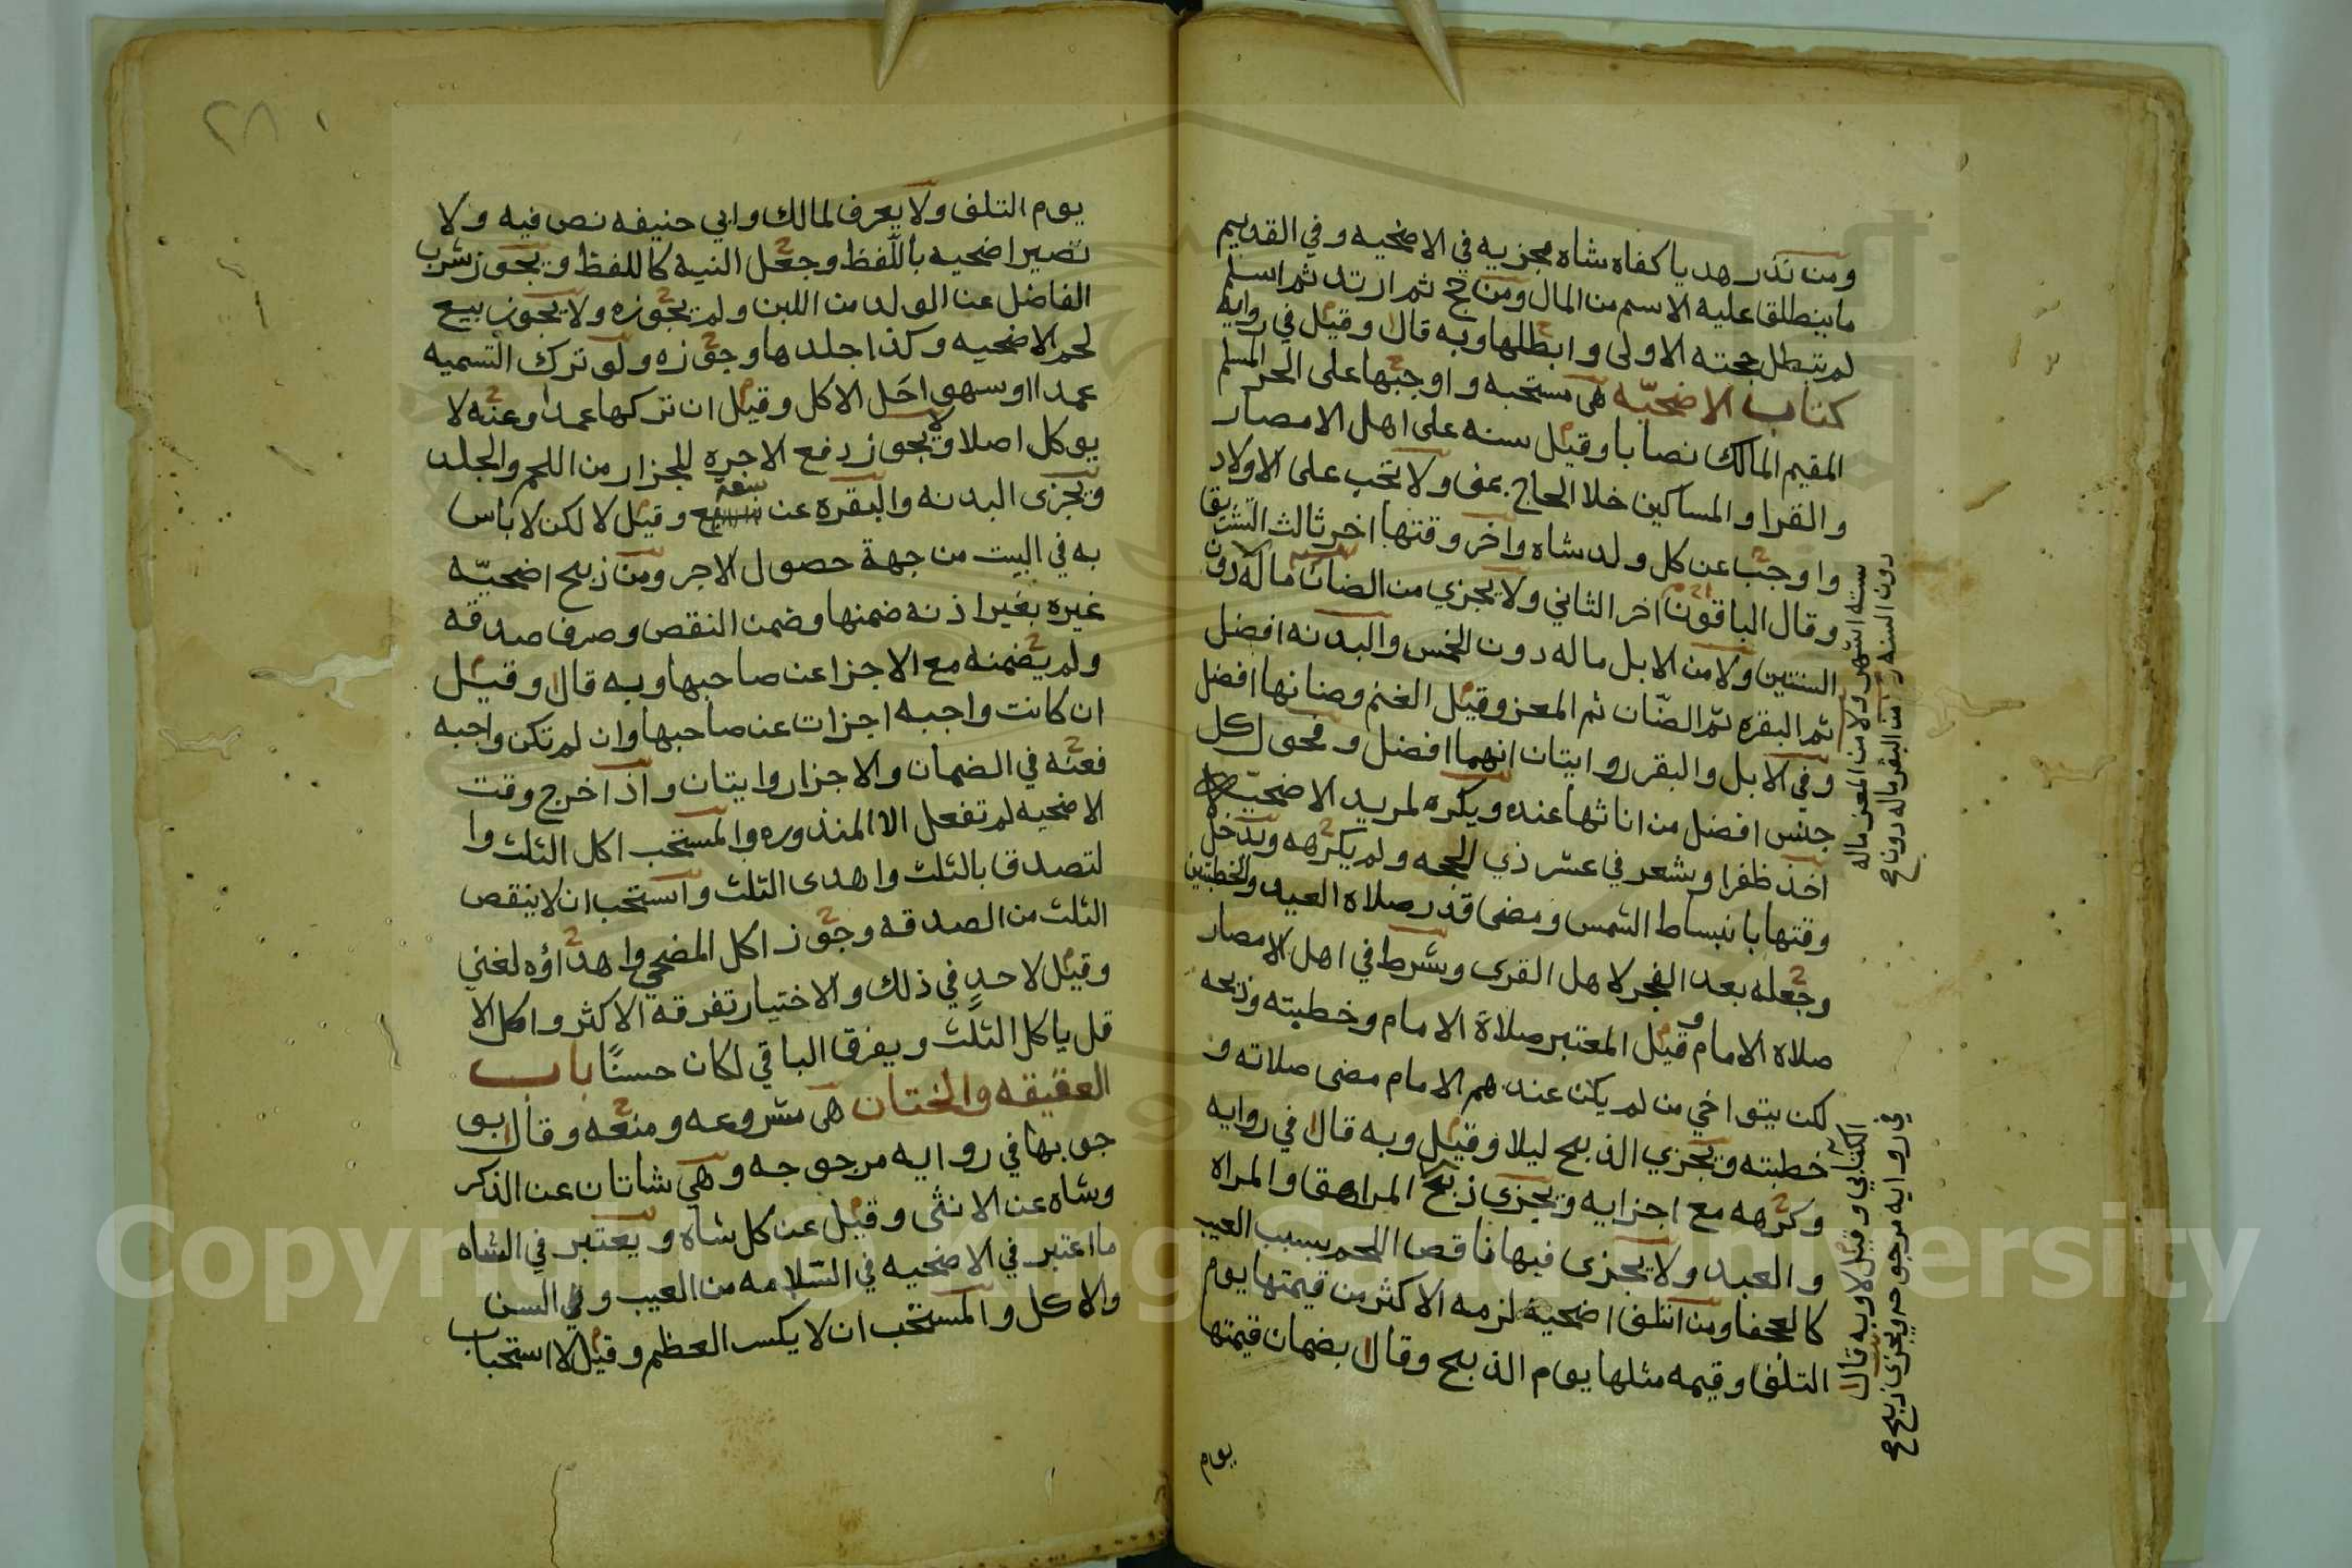 ومن نذر هديا كفاه شاه مجزيه في الاضحيه وفي القديم
ما ينطلق عليه الاسم من المال ومن حج ثم ارتد ثم اسلم
لم تبطل حجته الاولى وابطلها وبه قال وقيل في روايه
كتاب الاضحيّه هى مستحبه واوجبها على الحر المسلم
المقيم المالك نصابا وقيل سنه على اهل الامصار
والقرا والمساكين خلا الحاج بمنى ولا تجب على الاولاد
واوجب عن كل ولد شاه واخر وقتها اخر ثالث التشريق
وقال الباقون اخر الثاني ولا يجزي من الضان ماله دون
السنتين ولا من الابل ماله دون الخمس والبدنه افضل
ثم البقره ثم الضّان ثم المعز وقيل الغنم وضانها افضل
وفي الابل والبقر روايتان انهما افضل وفحول كل
جنس افضل من اناثها عنده ويكره لمريد الاضحيّه
اخذ ظفرا وشعر في عشر ذي الحجه ولم يكرهه ويدخل
وقتها بانبساط الشمس ومضى قدر صلاه العيد والخطبتين
وجعله بعد الفجر لاهل القرى وشرط في اهل الامصار
صلاه الامام وقيل المعتبر صلاة الامام وخطبته وذبحه
لكن يتواخي من لم يكن عندهم الامام مضى صلاته و
خطبته ويجزي الذبح ليلا وقيل وبه قال في روايه
وكرهه مع اجزايه ويجزى ذبح المراهق والمراه
والعبد ولا يجزى فيها ناقص اللحم بسبب العيب
كالعجفا ومن اتلف اضحية لزمه الاكثر من قيمتها يوم
التلف وقيمه مثلها يوم الذبح وقال بضمان قيمتها
يوم
سته اشهر ولا من المعز ماله
دون السنه ولا من البقر ماله دون صح
الكتابي وقيل لا وبه قال
في روايه مرجوحه ويجزى ذبح صح
٢٨
يوم التلف ولا يعرف لمالك وابي حنيفه نص فيه ولا
تصير اضحيه باللّفظ وجعل النيه كاللفظ ويجوز شرب
الفاضل عن الولد من اللبن ولم يجوزه ولا يجوز بيع
لحم الاضحيه وكذا جلدها وجوزه ولو ترك التسميه
عمدا او سهو احَل الاكل وقيل ان تركها عمدا وعنه لا
يوكل اصلا ولا يجوز دفع الاجره للجزار من اللحم والجلد
ويجزى البدنه والبقره عن سبعة وقيل لا لكن لا باس
به في البيت من جهة حصول الاجر ومن ذبح اضحيّه
غيره بغير اذنه ضمنها وضمن النقص وصرف صدقه
ولم يضمنه مع الاجزا عن صاحبها وبه قال وقيل
ان كانت واجبه اجزات عن صاحبها وان لم تكن واجبه
فعنه في الضمان والاجزا روايتان واذا خرج وقت
الاضحيه لم تفعل الا المنذوره والمستحب اكل الثلث وا
لتصدق بالثلث واهدى الثلث واستحب ان لا ينقص
الثلث من الصدقه وجوز اكل المضحي واهداؤه لغني
وقيل لا حدٍ في ذلك والاختيار تفرقه الاكثر واكل الا
قل ياكل الثلث ويفرق الباقي لكان حسنًا باب
العقيقه والختان هى مشروعه ومنعه وقال بو
جوبها في روايه مرجوجه وهي شاتان عن الذكر
وشاه عن الانثى وقيل عن كل شاه ويعتبر في الشاه
ما اعتبر في الاضحيه في السّلامه من العيب وفي السن
والاكل والمستحب ان لا يكسر العظم وقيل لا استحباب
Copyright © King Saud University